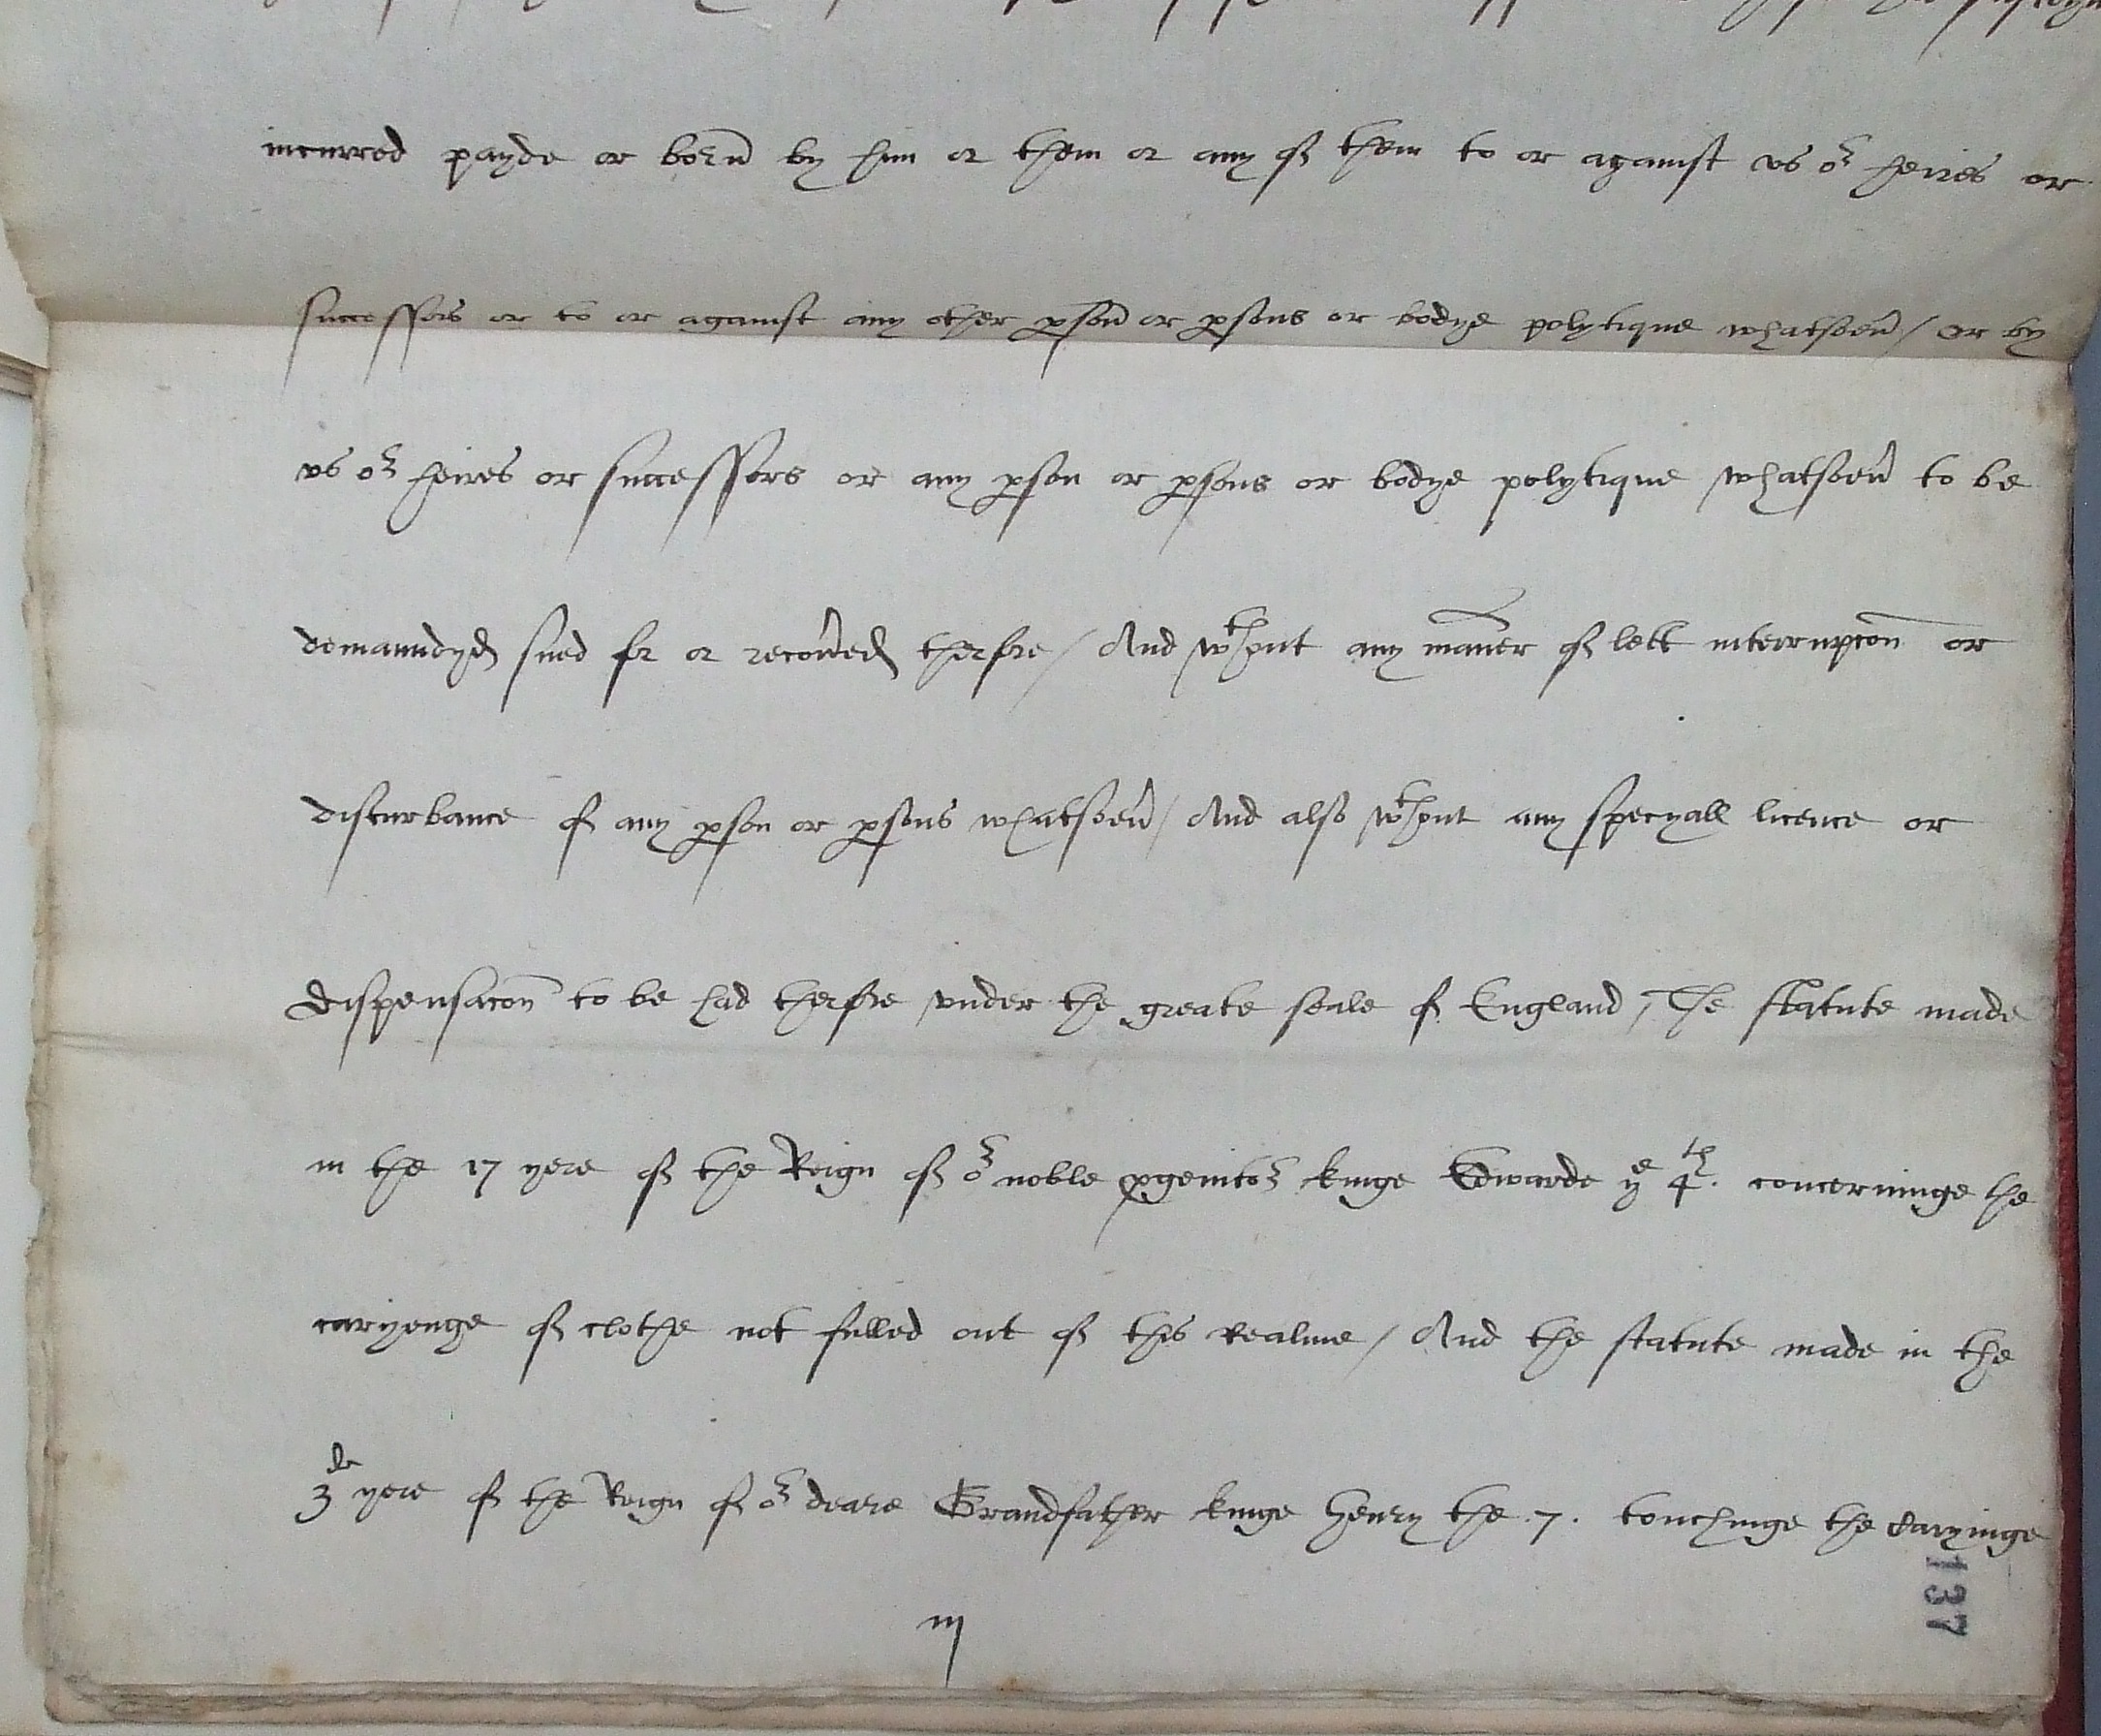 incurred payde or born by him or them or any of them to or against vs or heires or
successors or to or against any other pson or psons or bodye polytique whatsoeu / or by
vs or heires or successors or any pson or psons or bodye polytique whatsoeu to be
demaundyd sued for or recoued therfore / And wthout any maner of lett interrupcon or
disturbance of any pson or psons whatsoeu / And also wthout any specyall licence or
dispensacon to be had therfore vnder the greate seale of England, The statute made
in the 17 yere of the Reign of or noble pgenitor kinge Edwarde ye 4th. concerninge the
caryenge of clothe not fulled out of this Realme / And the statute made in the
3de yere of the Reign of or deare Grandfather kinge Henry the .7. touchinge the caryinge
iij
137